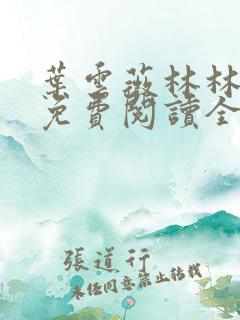 葉雲薇林林
免費閱讀全
張道行
未經同意禁止轉載